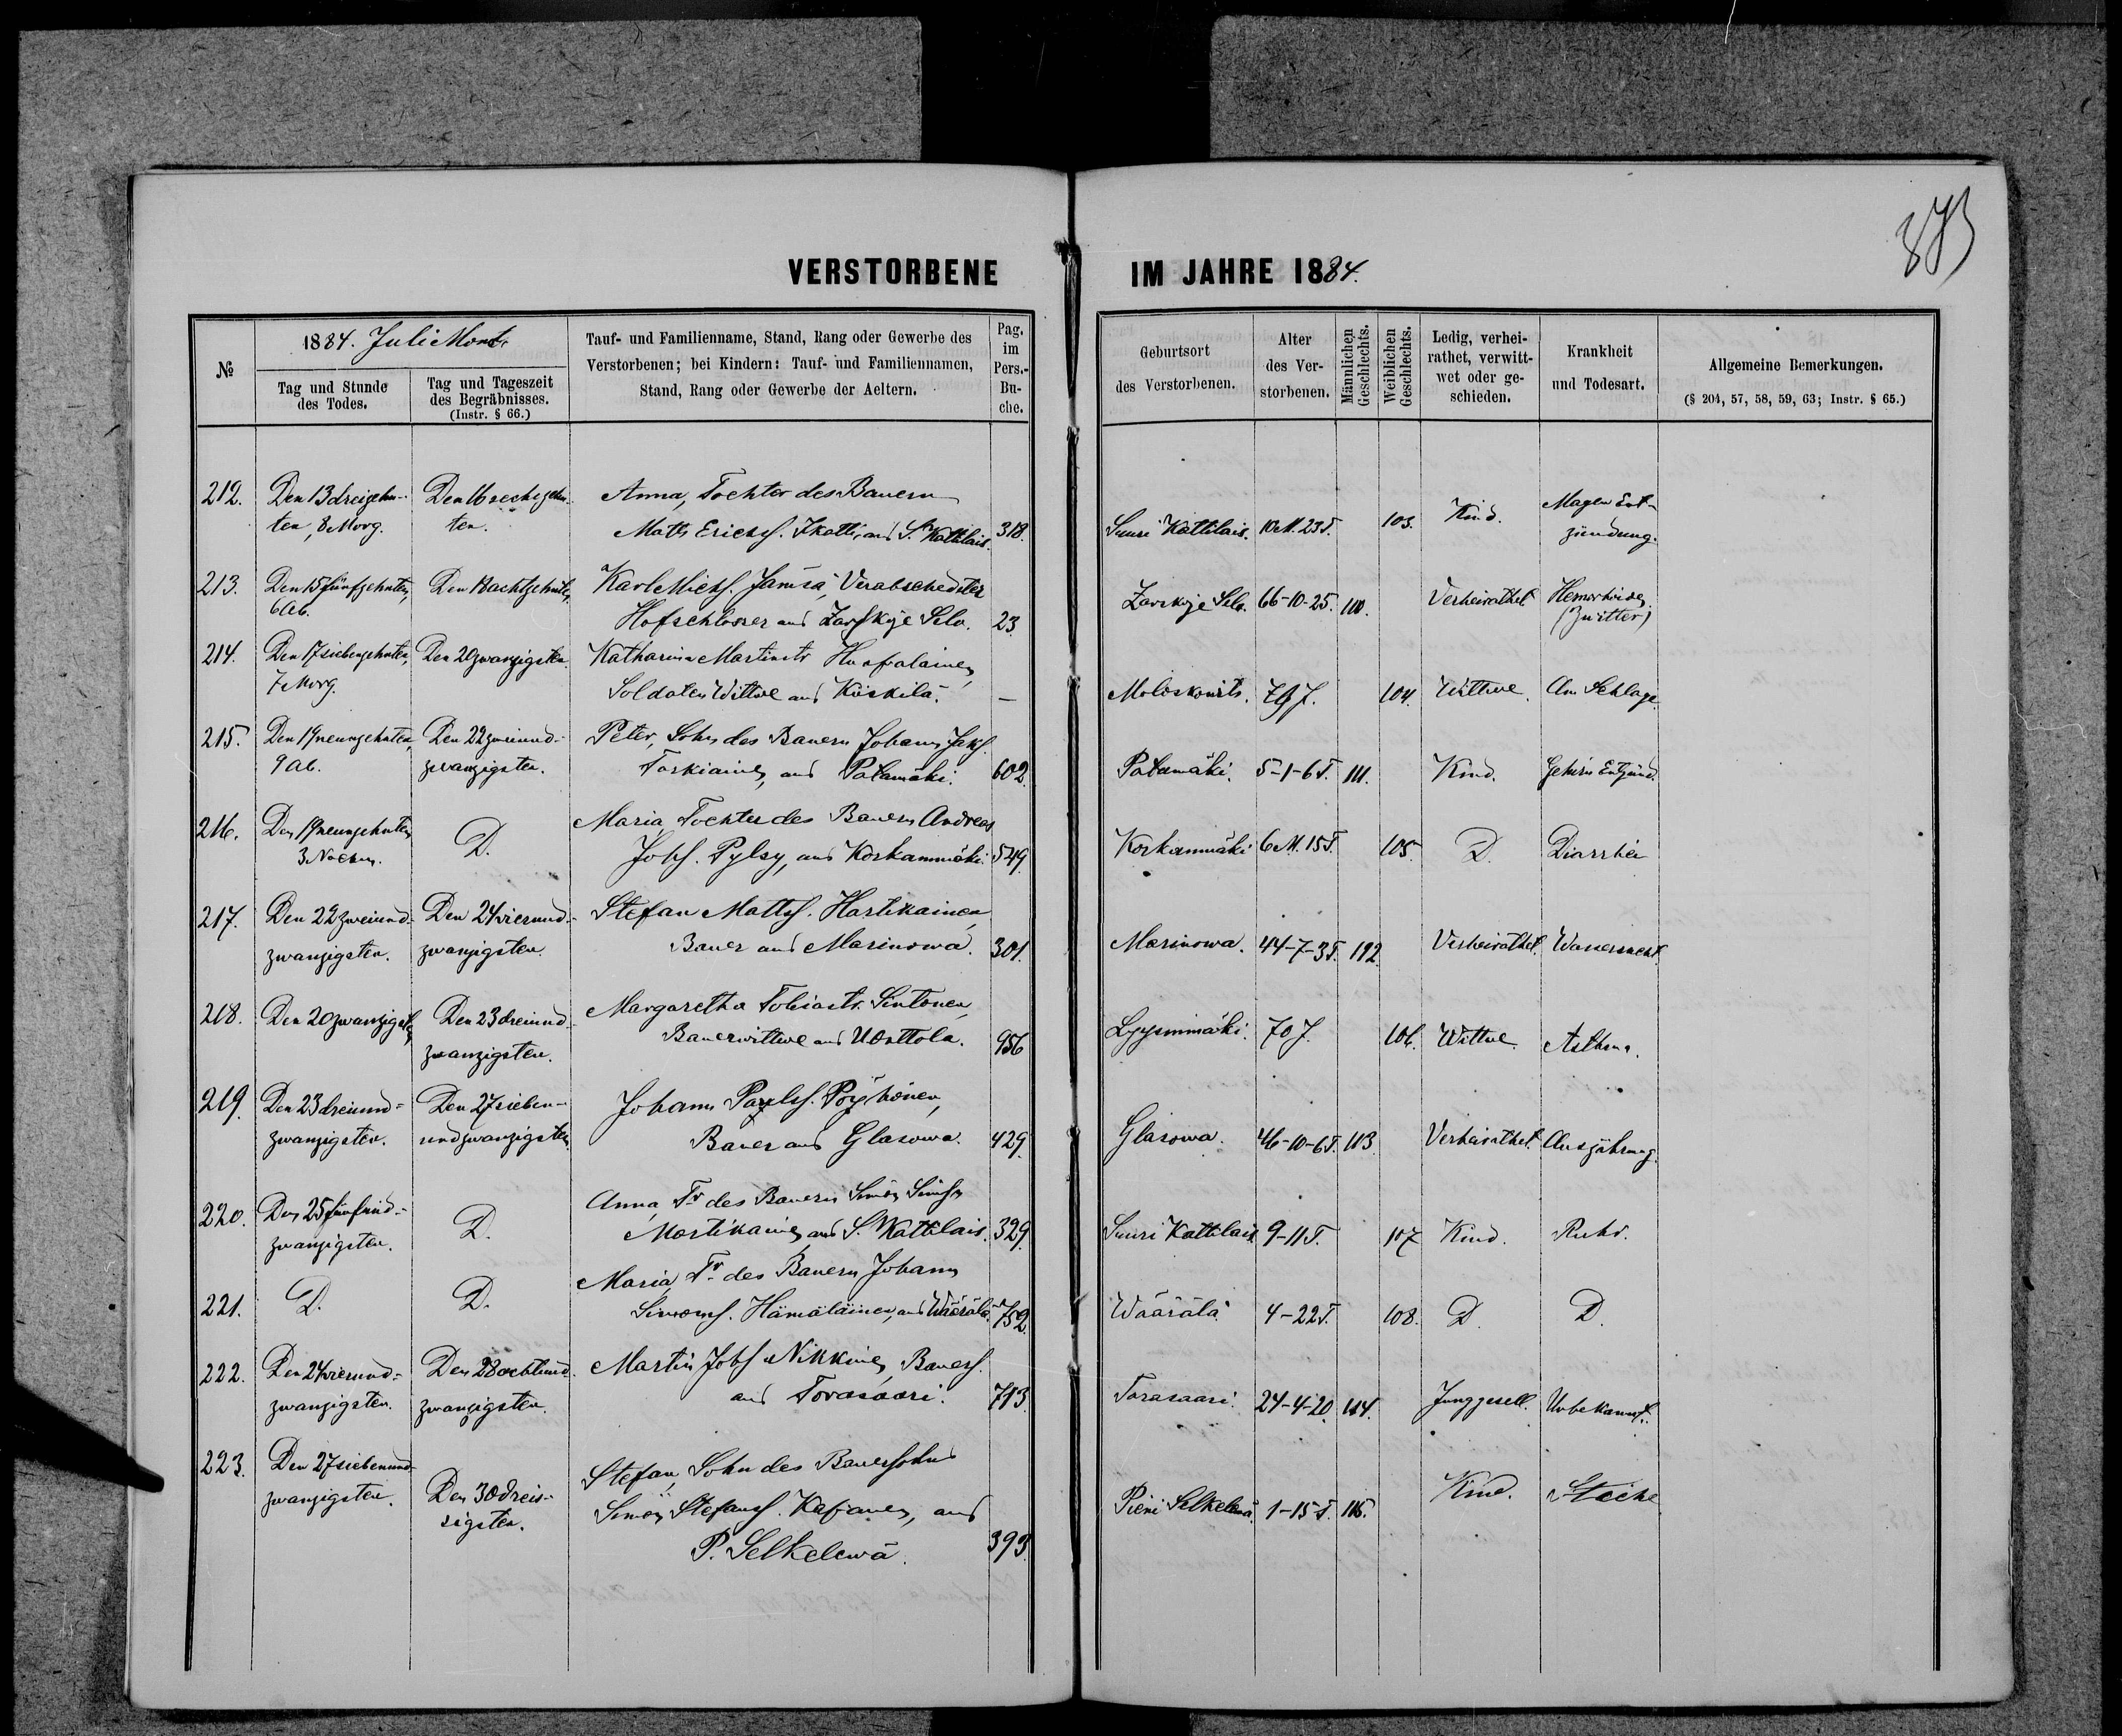 373
VERSTORBENE IM JAHRE 1884.
№
1884. Juli Monat
Tag und Stunde
des Todes.
Tag und Tageszeit
des Begräbnisses.
(Instr. § 66.)
Tauf- und Familienname, Stand, Rang oder Gewerbe des
Verstorbenen; bei Kindern: Tauf- und Familiennamen,
Stand, Rang oder Gewerbe der Aeltern.
Pag.
im
Pers.-
Bu-
che.
Geburtsort
des Verstorbenen.
Alter
des Ver-
storbenen.
Männlichen
Geschlechts.
Weiblichen
Geschlechts.
Ledig, verhei-
rathet, verwitt-
wet oder ge-
schieden.
Krankheit
und Todesart.
Allgemeine Bemerkungen.
(§ 204, 57, 58, 59, 63; Instr. § 65.)
212. Den 13 dreizehn- Den 16 sechszehn- Anna, Tochter des Bauern
ten, 8 Morg. ten. Matts Erichs. Ikatti, aus S. Kattilais. 318. Suuri Kattilais. 10 M. 23 T. 103. Kind. Magen Ent-
zündung.
213. Den 15 fünfzehnten, Den 18 achtzehnten, Karl Michs. Jamsä, Verabschedeter
6 Ab. Hofschlosser aus Zarskoje Selo. 23. Zarskoje Selo. 66-10-25. 110. Verheirathet Hemorhoiden
(Zwitter)
214. Den 17 siebenzehnten, Den 20 zwanzigsten. Katharina Martinstr
7 Morg. Soldaten Wittwe aus Kiiskilä. — Moloskowits. 79 J. 104. Wittwe. Am Schlage.
215. Den 19 neunzehnten, Den 22 zweiund- Peter, Sohn des Bauern Johann Jaks.
9 Ab. zwanzigsten. Torkiainen, aus Patamäki. 602. Patamäki. 5-1-6 T. 111. Kind. Gehirn Entzünd.
216. Den 19 neunzehnten D. Maria Tochter des Bauern Andreas
3 Nachm. Johs. Pylsy, aus Korkanmäki. 549. Korkanmäki 6 M. 15 T. 105. D. Diarrhöe
217. Den 22 zweiund- Den 24 vierund- Stefan Matts. Hartikainen,
zwanzigsten. zwanzigsten. Bauer aus Marinowa. 301. Marinowa. 44-7-3 T. 112. Verheirathet. Wassersucht.
218. Den 20 zwanzigsten, Den 23 dreiund- Margaretha Tobiastr. Sintonen,
zwanzigsten. Bauerwittwe aus Uottola. 956 70 J. 106. Wittwe. Asthma.
219. Den 23 dreiund- Den 27 sieben- Johann Pauls. Pöyhönen,
zwanzigsten. undzwanzigsten, Bauer aus Glasowa. 429. Glasowa. 46-10-6 T. 113. Verheirathet. Auszährung.
220. Den 25 fünfund- D. Anna, Tr des Bauern Simon Sims.
zwanzigsten. Martikainen, aus S. Kattilais. 329. Suuri Kattilais. 9-11 T. 107 Kind. Ruhr.
221. D. D. Maria, Tr des Bauern Johann
Simons. Hämäläinen, aus Wäärälä. 752. Wäärälä. 4-22 T. 108. D. D.
222. Den 24 vierund- Den 28 achtund- Martin Johs. Nikkinen, Bauers.
zwanzigsten. zwanzigsten. aus Torasaari. 713. Torasaari. 24-4-20. 114. Junggesell. Unbekannt.
223. Den 27 siebenund- Stefan, Sohn des Bauersohns
zwanzigsten. Den 30 dreis- Simon Stefans. Kapanen, aus Pieni Selkelewä. 1-15 T. 115. Kind. Steche
sigsten. P. Selkelewä. 393.